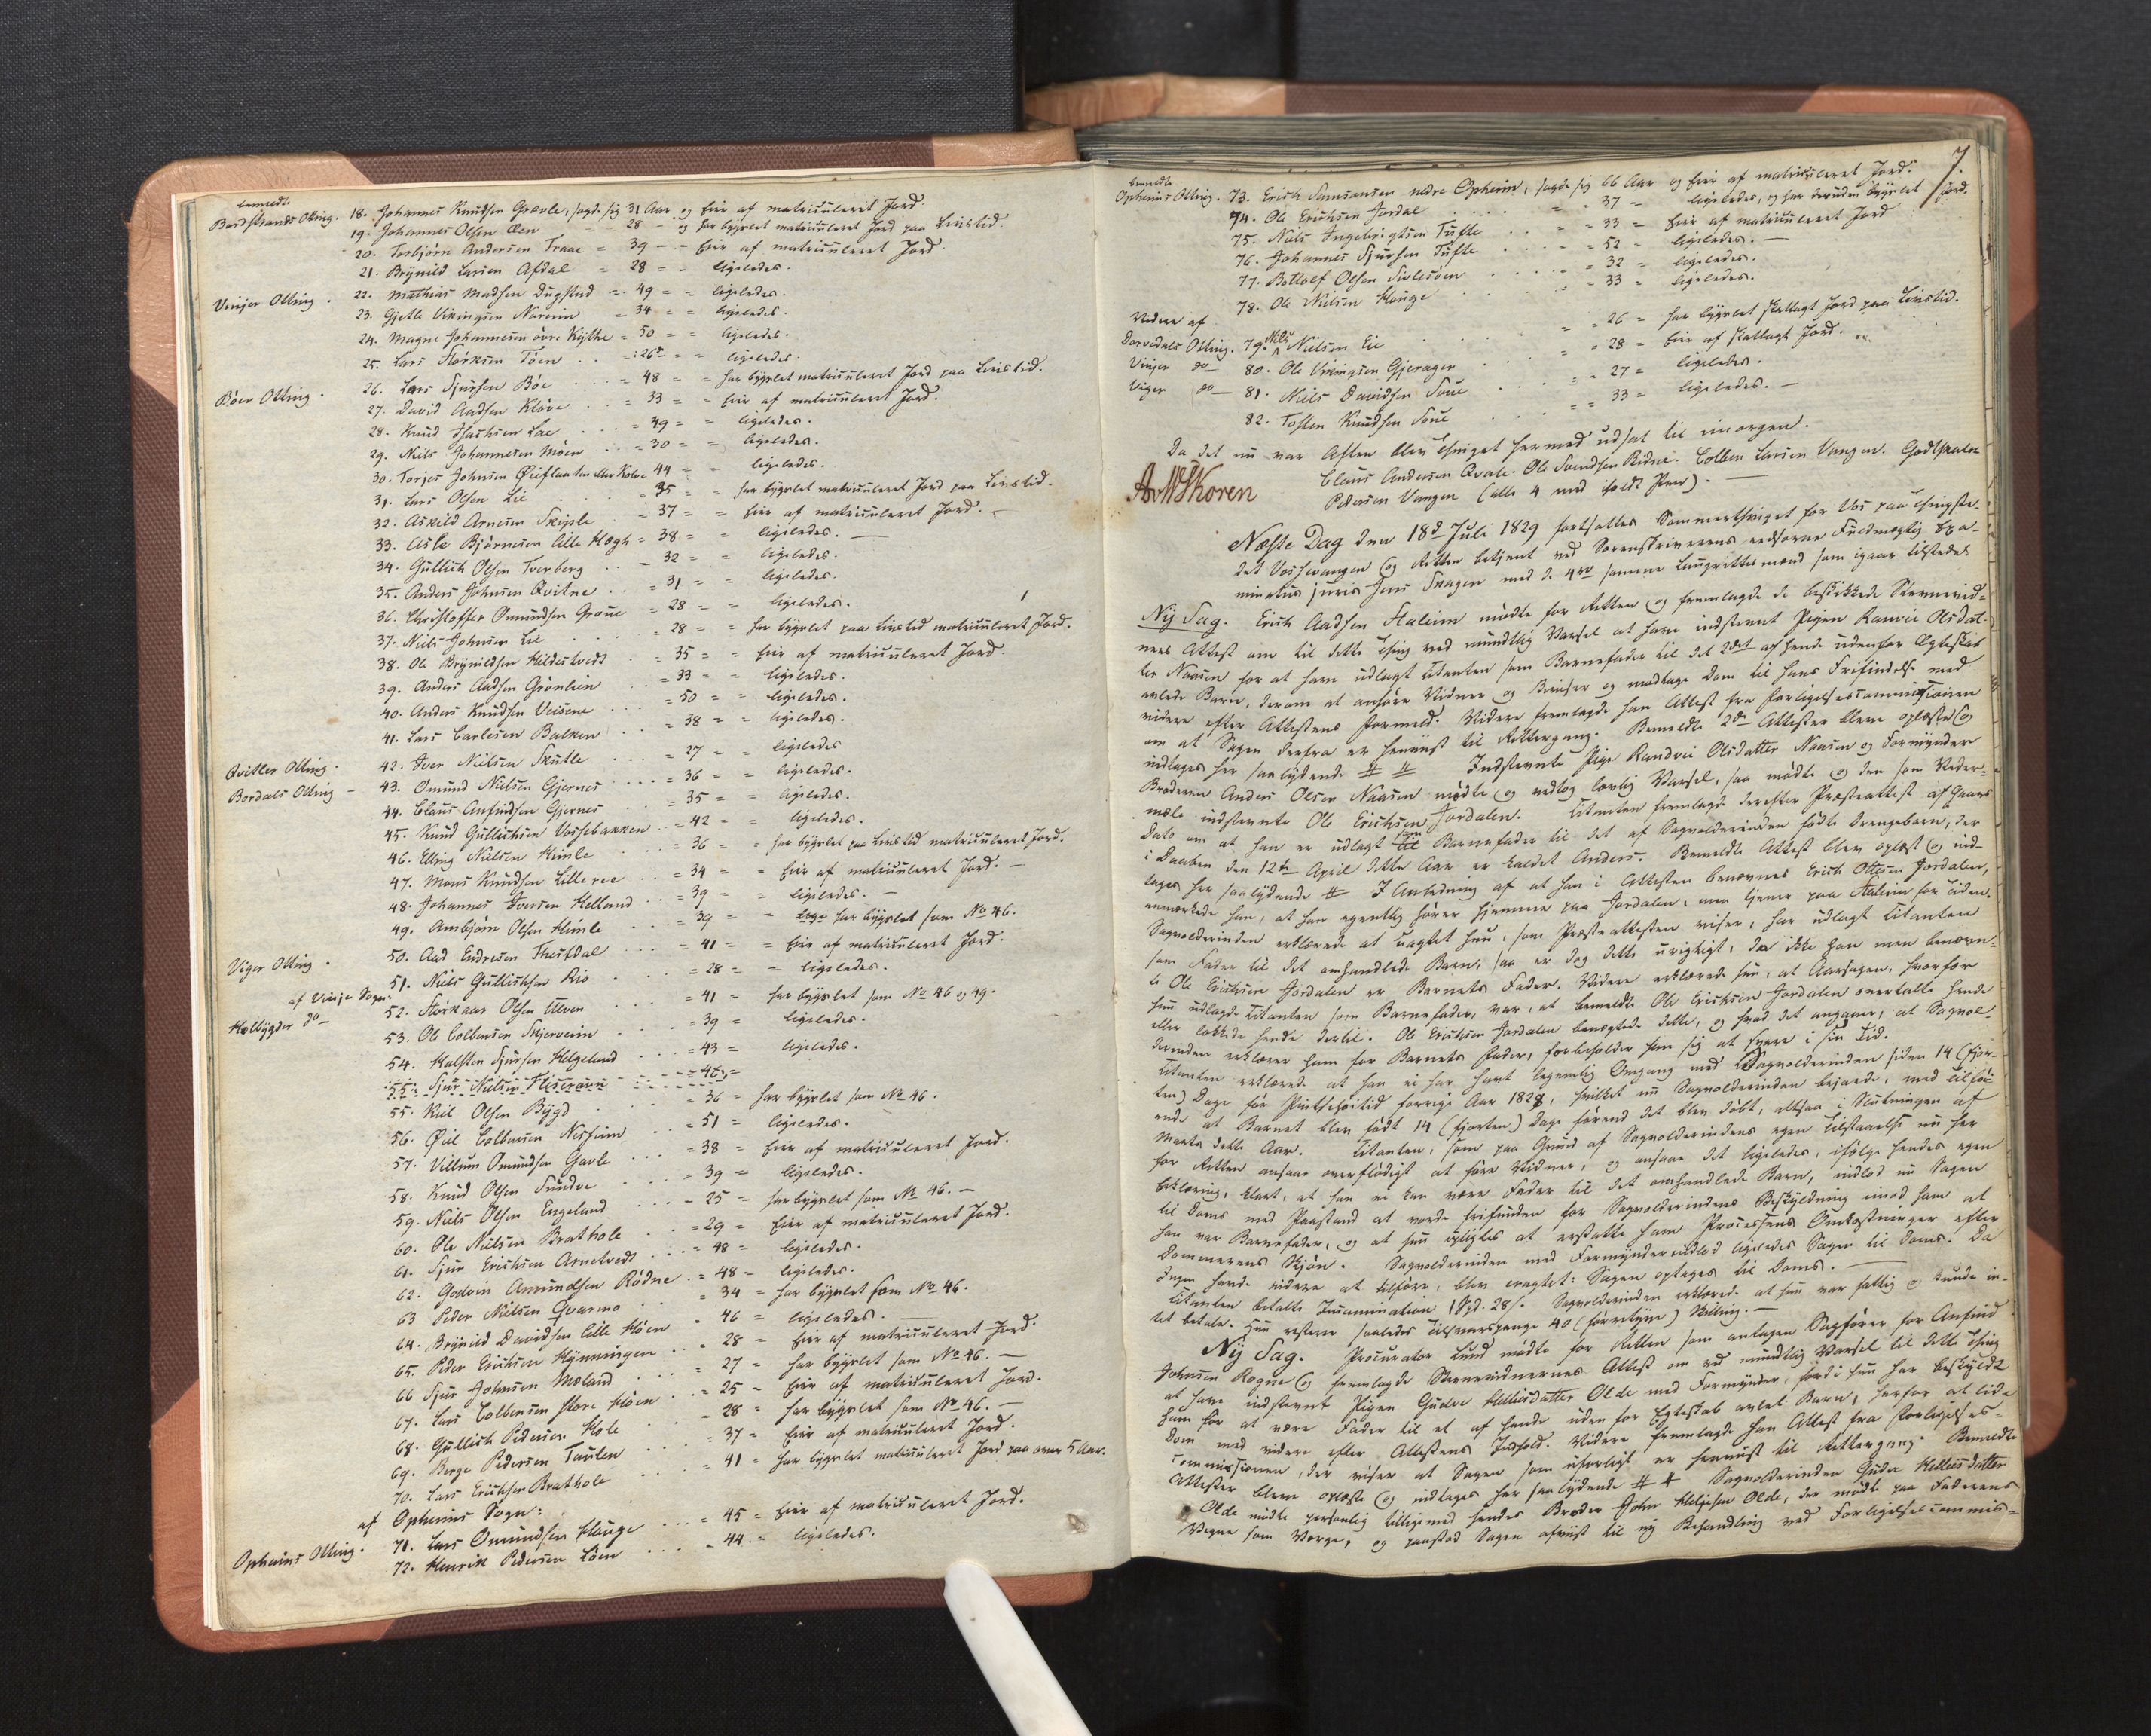 bemeldte
Bordstrands Otting. 18. Johannes Knudsen Grevle, sagde sig 31 Aar og Eier af matriculeret Jord.
19. Johannes Olsen Øen 28 - og har bygslet matriculeret Jord paa Livstid.
20. Torbjørn Andersen Traae = 39 - - Eier af matriculeret Jord.
21. Brynild Larsen Afdal = 28 = = ligeledes.
Vinjer Otting. 22. Mathias Madsen Dugstad = 49 = = ligeledes.
23. Gjetle Vikingsen Norheim = 34 = = ligeledes.
24. Magne Johannesen øvre Kythe = 50 = = ligeledes.
25. Lars Størksen Tøen . . = 26 = = ligeledes.
Bøer Otting. 26. Lars Sjursen Bøe . . . = 48 = = har bygslet matriculeret Jord paa Livstid.
27. David Aadsen Kløve . . = 33 = = Eier af matriculeret Jord.
28. Knud Isachsen Lae . . . = 49 = = ligeledes.
29. Niels Johannesen Møen . . = 30 = = ligeledes.
30. Torjes Johnsen 44 = ligeledes.
31. Lars Olsen Lie . . . = 35 = = har bygslet matriculeret Jord paa Livstid.
32. Askild Arnesen Skiple . . = 37 = = Eier af matriculeret Jord.
33. Asle Bjørnesen lille Høgh = 38 = = ligeledes. —
34. Gullich Olsen Tverberg . . = 32 = = ligeledes.
35. Anders Johnsen Qvitne . . = 31 = = ligeledes.
36. Christoffer Omundsen Groue = 28 = = ligeledes.
37. Niels Johnsen Lie . . = 28 = = har bygslet paa Livstid matriculeret Jord.
38. Ole Brynildsen Hildestvedt . = 35 = = Eier af matriculeret Jord.
39. Anders Aadsen Grønlien . . = 33 = = ligeledes.
40. Anders Knudsen Veisene . . . = 50 = = ligeledes.
41. Lars Carlesen Balken . . . = 38 = = ligeledes.
Qvitler Otting. 42. Iver Nielsen Skutle . . . = 27 = = ligeledes
Bordals Otting - 43. Omund Nielsen Gjernes . . . . = 36 = = ligeledes.
44. Claus Anfindsen Gjernes . . . = 35 = = ligeledes.
45. Knud Gullichsen Vossebakken . . = 42 = = ligeledes.
46. Elling Nielsen Himle . . = 36 = = har bygslet paa Livstid matriculeret Jord.
47. Mons Knudsen Lilleree . . = 34 = = Eier af matriculeret Jord. —
48. Johannes Iversen Helland . . = 39 = = ligeledes. —
49. Ambjørn Olsen Himle . . = 39 = = har bygslet som No 46.
Viger Otting. 50. Aad Endresen . . . = 41 = = Eier af matriculeret Jord.
51. Niels Gullichsen Rio . . . = 28 = = ligeledes.
af Vinje Sogn:
Holbygder do — 52. Storkaar Olsen Ulven = 41 = har bygslet som No 46 og 49.
53. Ole Colbensen Skjerveim . . = 39 = ligeledes.
54. Halsten Sjursen Helgeland . . . = 43 = ligeledes.
55. Sjur Nielsen . . . = 45 =
55. Kiel Olsen Bygd . . . = 36 = har bygslet som No 46.
56. Øiel Colbensen Nesheim . . . = 51 = ligeledes.
57. Villum Omundsen Gavle . . . = 38 = Eier af matriculeret Jord.
58. Knud Olsen Sundve . . . = 39 = ligeledes.
59. Niels Olsen Engeland . . . = 25 = har bygslet som No 46. —
60. Ole Nielsen Brathole . . = 29 = Eier af matriculeret Jord.
61. Sjur Erichsen Arnetvedt . . . = 48 = ligeledes.
62. Godvin Amundsen Rødne . = 48 = ligeledes.
63 Peder Nielsen Qvarme . . = 34 = har bygslet som No 46.
64. Brynild Davidsen lille Møen = 46 = ligeledes.
65. Peder Erichsen Hynningen . . = 28 = Eier af matriculeret Jord.
66 Sjur Johnsen Mæland . . . = 27 = har bygslet som No 46. —
67. Lars Colbensen store Møen . . = 25 = Eier af matriculeret Jord.
68. Gullich Pedersen Hole . . . = 28 = har bygslet som No 46. —
69. Berge Pedersen Taulen . . . = 37 = Eier af matriculeret Jord.
70. Lars Erichsen Brathole . . . = 41 = har bygslet matriculeret Jord paa over 5 Aar.
af Opheims Sogn:
Opheims Otting. 71. Lars Omundsen Hauge . . . = 45 = Eier af matriculeret Jord.
72. Henrik Pedersen Løen . . . . = 44 = ligeledes.
7.
bemeldte
Opheims Otting. 73. Erich Samsonsen nedre Opheim, sagde sig 66 Aar og Eier af matriculeret Jord.
74. Ole Erichsen Jordal . . . = = 37 = ligeledes, og har desuden bygslet Jord.
75. Niels Ingebrigtsen Tufte . . = = 33 = Eier af matriculeret Jord
76. Johannes Sjursen Tufte . . . = = 52 = ligeledes. —
77. Botlolf Olsen Sivlesøen . . . . = 32 = ligeledes.
78. Ole Nielsen Hauge . . . = = 33 = ligeledes.
Videre af
Dorvedals Otting. 79. Niels Nielsen Lie . . . = = 26 = har bygslet skatlagt Jord paa Livstid.
Vinjer do — 80. Ole Vikingsen Gjerager . . = = 28 = Eier af skatlagt Jord.
Viger do — 81. Niels Davidsen Soue . . = = 27 = ligeledes.
82. Tosten Knudsen Soue . . = = 33 = ligeledes. —
Da det nu var Aften blev Thinget hermed udsat til imorgen.
AvWSKoren Claus Andersen Qvale. Ole Svendsen Ridsei. Colben Larsen Vangen. Godtskalck
Pedersen Vangen (alle 4 med iholdt Pen). —
Næste Dag den 18de Juli 1829 fortsattes Sommerthinget for Vos paa Thingste-
det Vossevangen og Retten betjent ved Sorenskriverens edsorne Fuldmægtig Exa-
minatus juris Jens Skagen med de 4re samme Laugrettesmænd som igaar tilstede.
Ny Sag. Erich Aadsen Stalem mødte for Retten og fremlagde de beskikkede Stevnevid-
ners Attest om til dette Thing ved mundtlig Varsel at have indstevnt Pigen Ranvei Olsdat-
ter Naasen for at have udlagt Citanten som Barnefader til det 2det af hende udenfor Ægteskab
avlede Barn, derom at anhøre Vidner og Beviser og modtage Dom til hans Frifindelse med
videre efter Attestens Formeld. Videre fremlagde han Attest fra Forligelsescommissionen
om at Sagen derfra er henviist til Rettergang. Bemeldte 2de Attester bleve oplæste og
indtages her saalydende # # Indstevnte Pige Randvei Olsdatter Naasen og Formynder
Broderen Anders Olsen Naasen mødte og vedtog lovlig Varsel, saa mødte og den som Veder-
mæle indstevnte Ole Erichsen Jordalen. Citanten fremlagde derefter Præsteattest af Gaars
Dato om at han er udlagt som til Barnefader til det af Sagvolderinden fødte Drengebarn, der
i Daaben den 12te April dette Aar er kaldet Anders. Bemeldte Attest blev oplæst og ind-
tages her saalydende # I Anledning af at han i Attesten benævnes Erich Ottesen Jordalen,
anmærkede han, at han egentlig hører hjemme paa Jordalen, men tjener paa Stalem for Tiden.
Sagvolderinden erklærede at uagtet hun, som Præsteattesten viser, har udlagt Citanten
som Fader til det omhandlede Barn, saa er dog dette urigtigt, da ikke han men benævn-
te Ole Erichsen Jordalen er Barnets Fader. Videre erklærede hun, at Aarsagen, hvorfor
hun udlagde Citanten som Barnefader, var, at bemeldte Ole Erichsen Jordalen overtalte hende
eller lokkede hende dertil. Ole Erichsen Jordalen benægtede dette, og hvad det angaaer, at Sagvol-
derinden erklærer ham for Barnets Fader, forbeholder han sig at svare i sin Tid.
Citanten erklærede at han ei har havt legemlig Omgang med Sagvolderinden siden 14 (fjor-
ten) Dage før Pintsehøitid forrige Aar 1828, hvilket nu Sagvolderinden bejaede, med Tilføi-
ende at Barnet blev født 14 (fjorten) Dage førend det blev døbt, altsaa i Slutningen af
Marts dette Aar. Citanten, som paa Grund af Sagvolderindens egen Tilstaaelse nu her
for Retten ansaae overflødigt at føre Vidner, og ansaae det ligeledes, ifølge hendes egen
Erklæring, klart, at han ei kan være Fader til det omhandlede Barn, indlod nu Sagen
til Doms med Paastand at vorde frifunden for Sagvolderindens Beskyldning imod ham at
han var Barnefader, og at hun pligtes at erstatte ham Processens Omkostninger efter
Dommerens Skjøn. Sagvolderinden med Formynder indlod ligeledes Sagen til Doms. Da
Ingen havde videre at tilføre, blev eragtet: Sagen optages til Doms. —
Citanten betalte Incamination 1 Spd. 28 s. Sagvolderinden erklærede at hun var fattig og kunde in-
tet betale. Hun resterer saaledes Tilsvarspenge 40 (førretyve) Skilling. —
Ny Sag. Procurator Lund mødte for Retten som antagen Sagfører for Anfind
Johnsen Rogne og fremlagde Stevnevidnernes Attest om ved mundtlig Varsel til dette Thing
at have indstevnt Pigen Gudve Helleisdatter Olde med Formynder, fordi hun har beskyldt
ham for at være Fader til et af hende uden for Egteskab avlet Barn, herfor at lide
Dom med videre efter Attestens Indhold. Videre fremlagde han Attest fra Forligelses-
commissionen, der viser at Sagen som uforligt er henviist til Rettergang. Bemeldte
Attester bleve oplæste og indtages her saalydende # # Sagvolderinden Gudve Helleisdatter
Olde mødte personlig tilligemed hendes Broder John Helleisen Olde, der mødte paa Faderens
Vegne som Verge, og paastod Sagen afviist til ny Behandling ved Forligelsescommis=